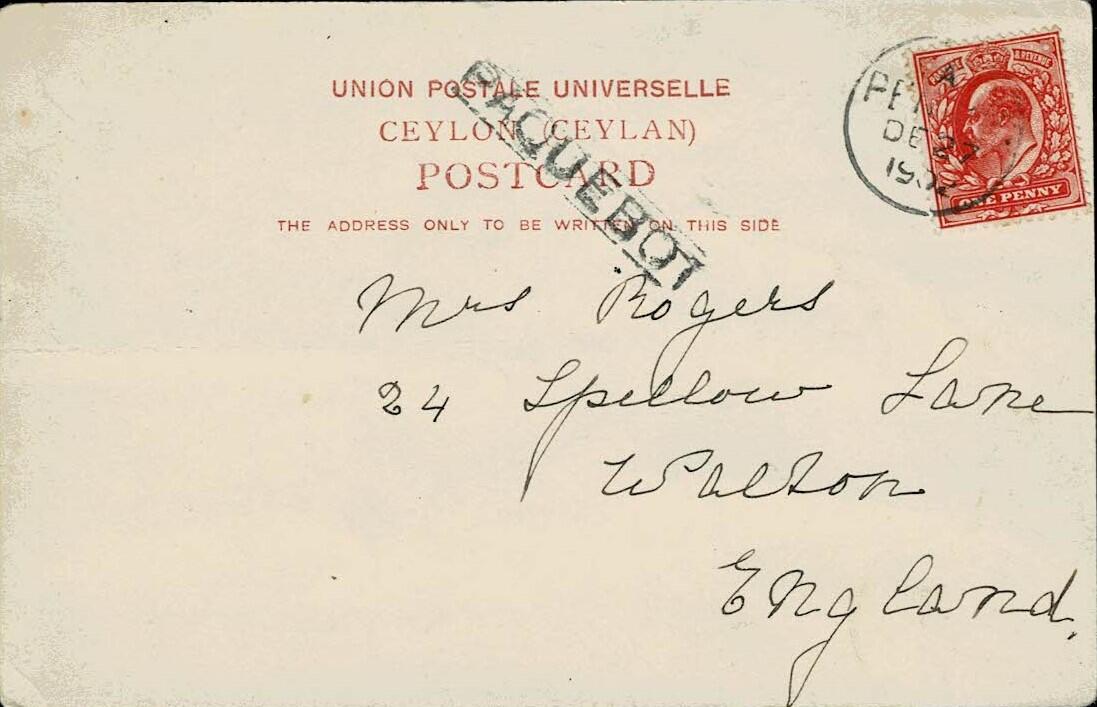 UNION POSTALE UNIVERSELLE
CEYLON (CEYLAN)
POSTCARD
THE ADDRESS ONLY TO BE WRITTEN ON THIS SIDE
PAQUEBOT
A
DE 27
POSTAGE & REVENUE
ONE PENNY
Mrs Rogers
24 Spellow Lane
Walton
England.